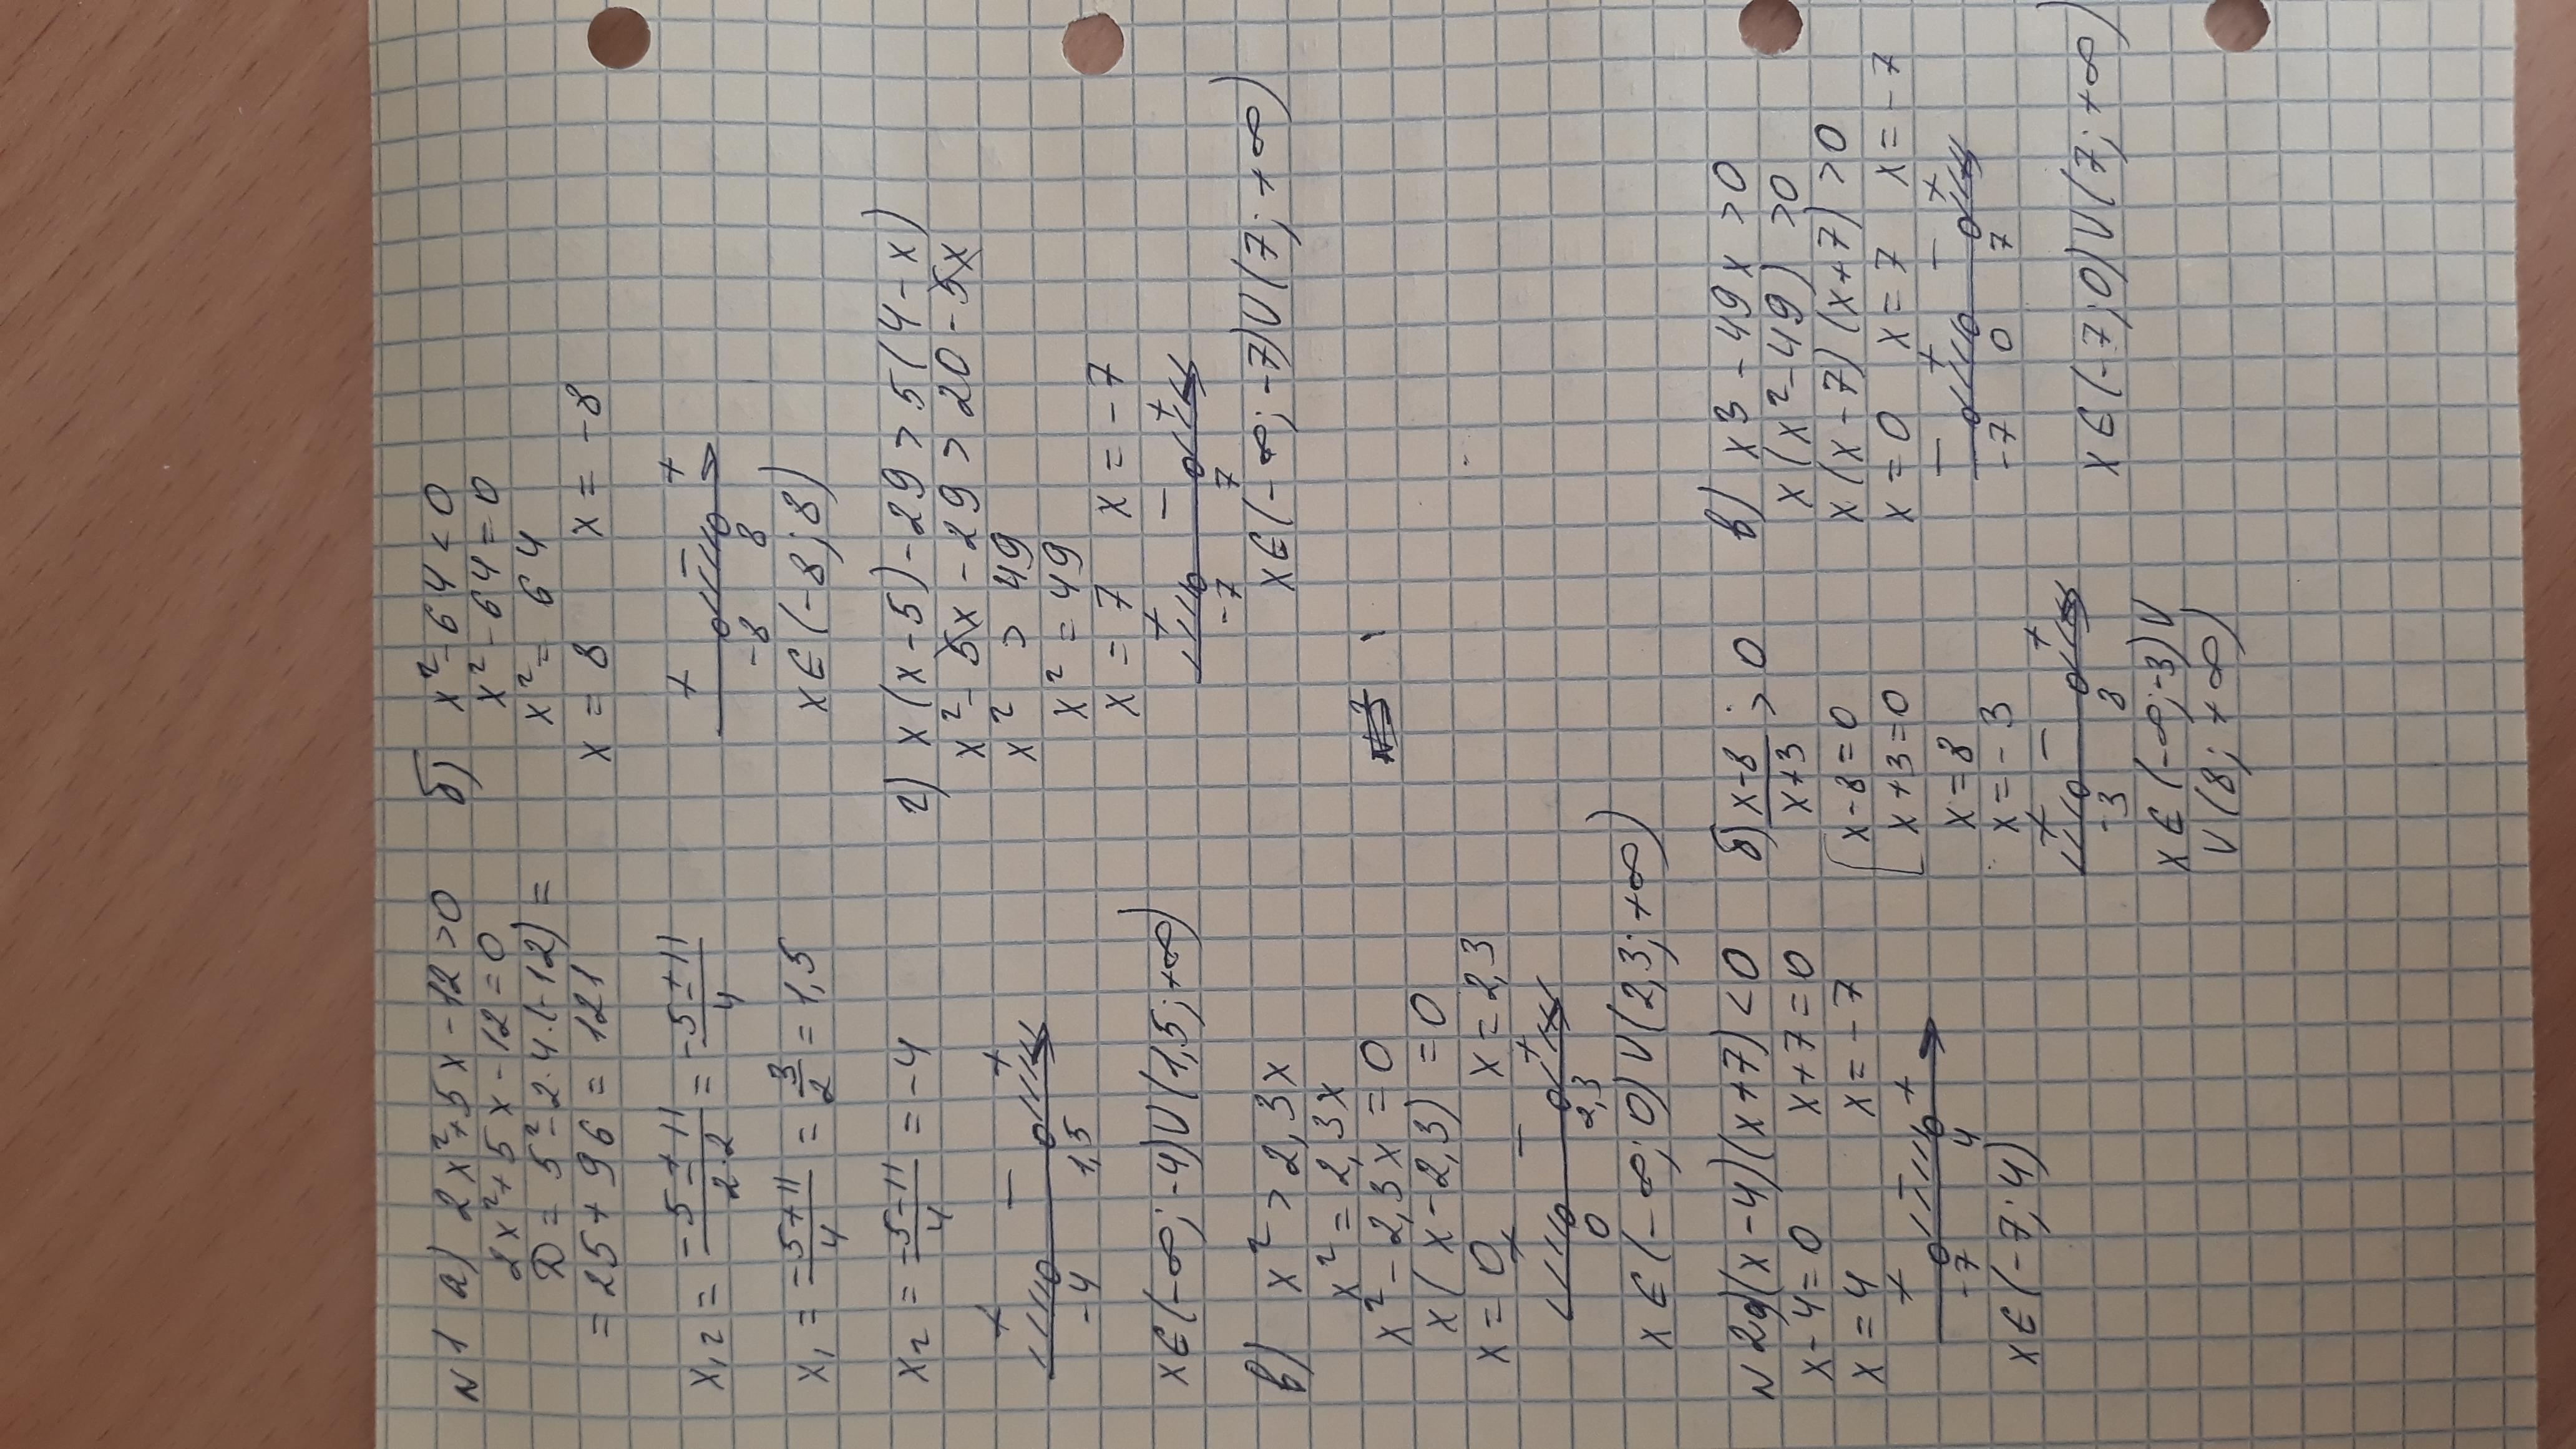 N1 а) 2x²+5x-12>0
2x²+5x-12=0
D=5²-2·4·(-12)=
=25+96=121
x₁₂=(-5±11)/(2·2)=(-5±11)/4
x₁=(-5+11)/4=3/2=1,5
x₂=(-5-11)/4=-4
+ - +
-4 1,5
x∈(-∞;-4)U(1,5;+∞)
б) x²-64<0
x²-64=0
x²=64
x=8 x=-8
+ - +
-8 8
x∈(-8;8)
в) x²>2,3x
x²=2,3x
x²-2,3x=0
x(x-2,3)=0
x=0 x=2,3
+ - +
0 2,3
x∈(-∞;0)U(2,3;+∞)
г) x(x-5)-29>5(4-x)
x²-5x-29>20-5x
x²>49
x²=49
x=7 x=-7
+ - +
-7 7
x∈(-∞;-7)U(7;+∞)
N2а)(x-4)(x+7)<0
x-4=0 x+7=0
x=4 x=-7
+ - +
-7 4
x∈(-7;4)
б) (x-8)/(x+3)>0
[x-8=0
x+3=0
x=8
x=-3
+ - +
-3 8
x∈(-∞;-3)U
U(8;+∞)
в) x3-49x>0
x(x²-49)>0
x(x-7)(x+7)>0
x=0 x=7 x=-7
- + - +
-7 0 7
x∈(-7;0)U(7;+∞)